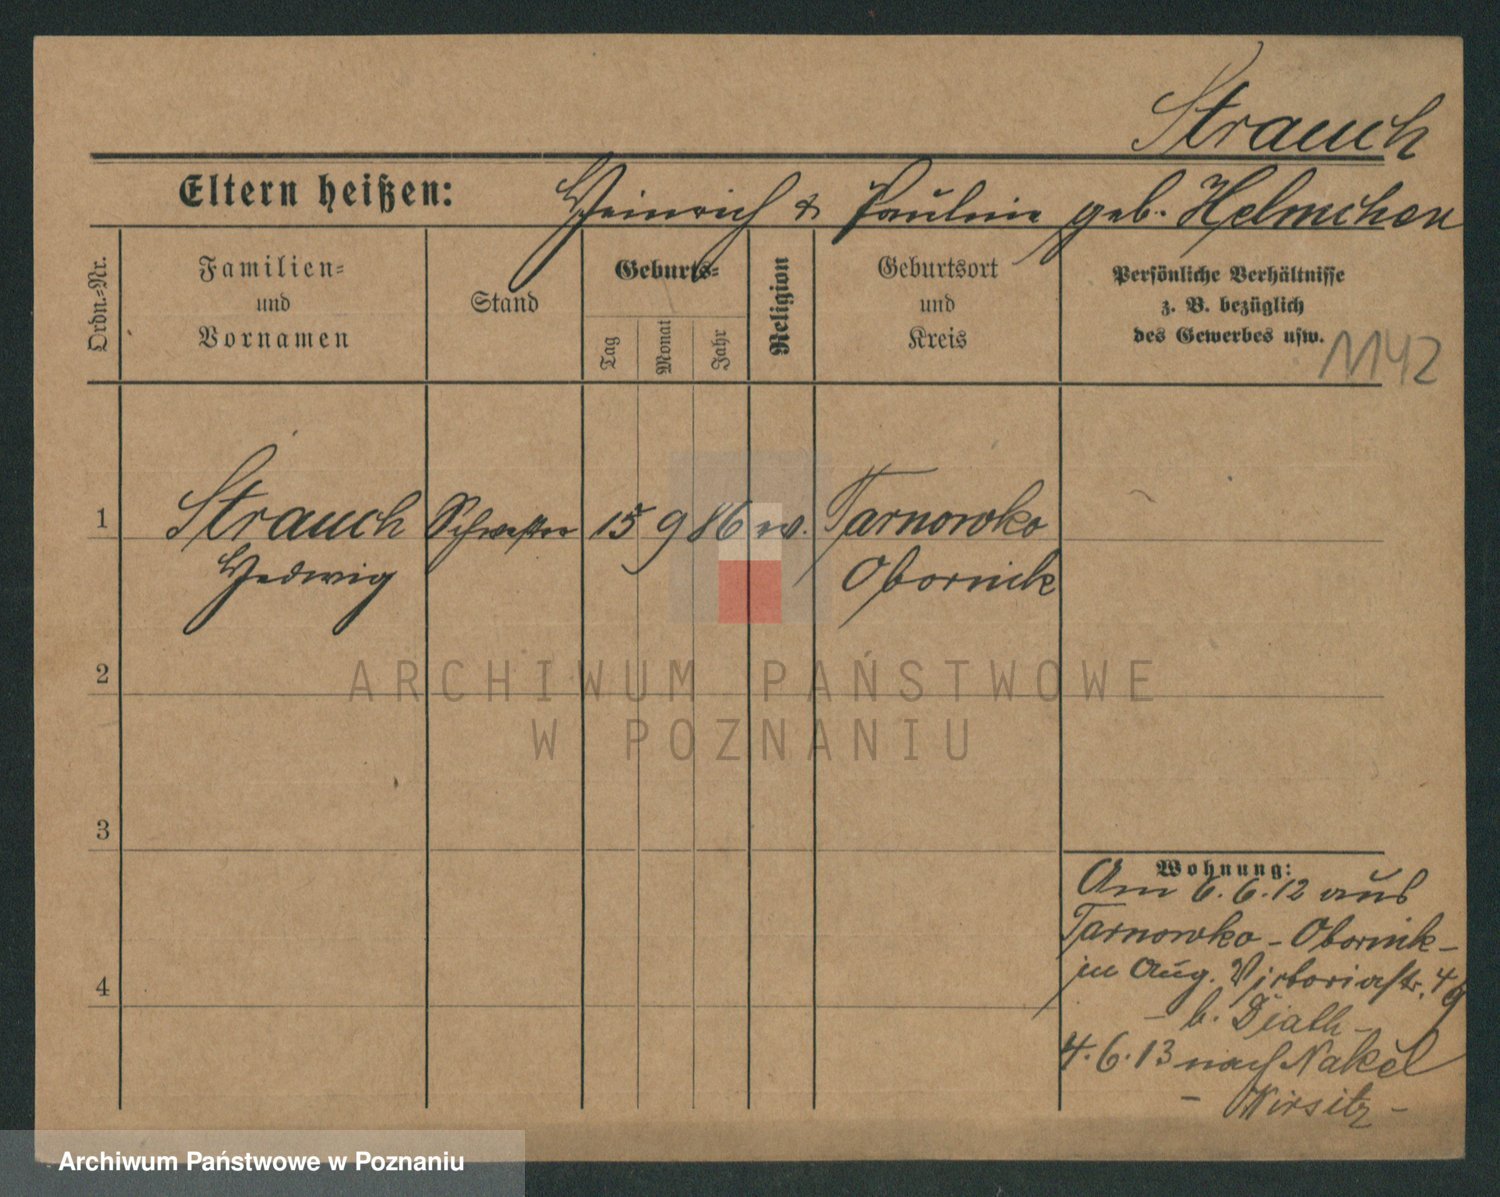 Strauch
Eltern heißen: Heinrich & Pauline geb. Helmchen
Ordn.=Nr.
Familien=
und
Vornamen
Stand
Geburts=
Tag
Monat
Jahr
Religion
Geburtsort
und
Kreis
Persönliche Verhältnisse
z. B. bezüglich
des Gewerbes usw.
1142
1 Strauch Schwester 15 9 86 ev. Tarnowko
Hedwig Obornik
2
3
4
Wohnung:
Am 6.6.12 aus
Tarnowko - Obornik -
in Aug. Viktoriastr. 49
- b. -
4.6.13 nach Nakel
- Wirsitz -
ARCHIWUM PAŃSTWOWE
W POZNANIU
Archiwum Państwowe w Poznaniu